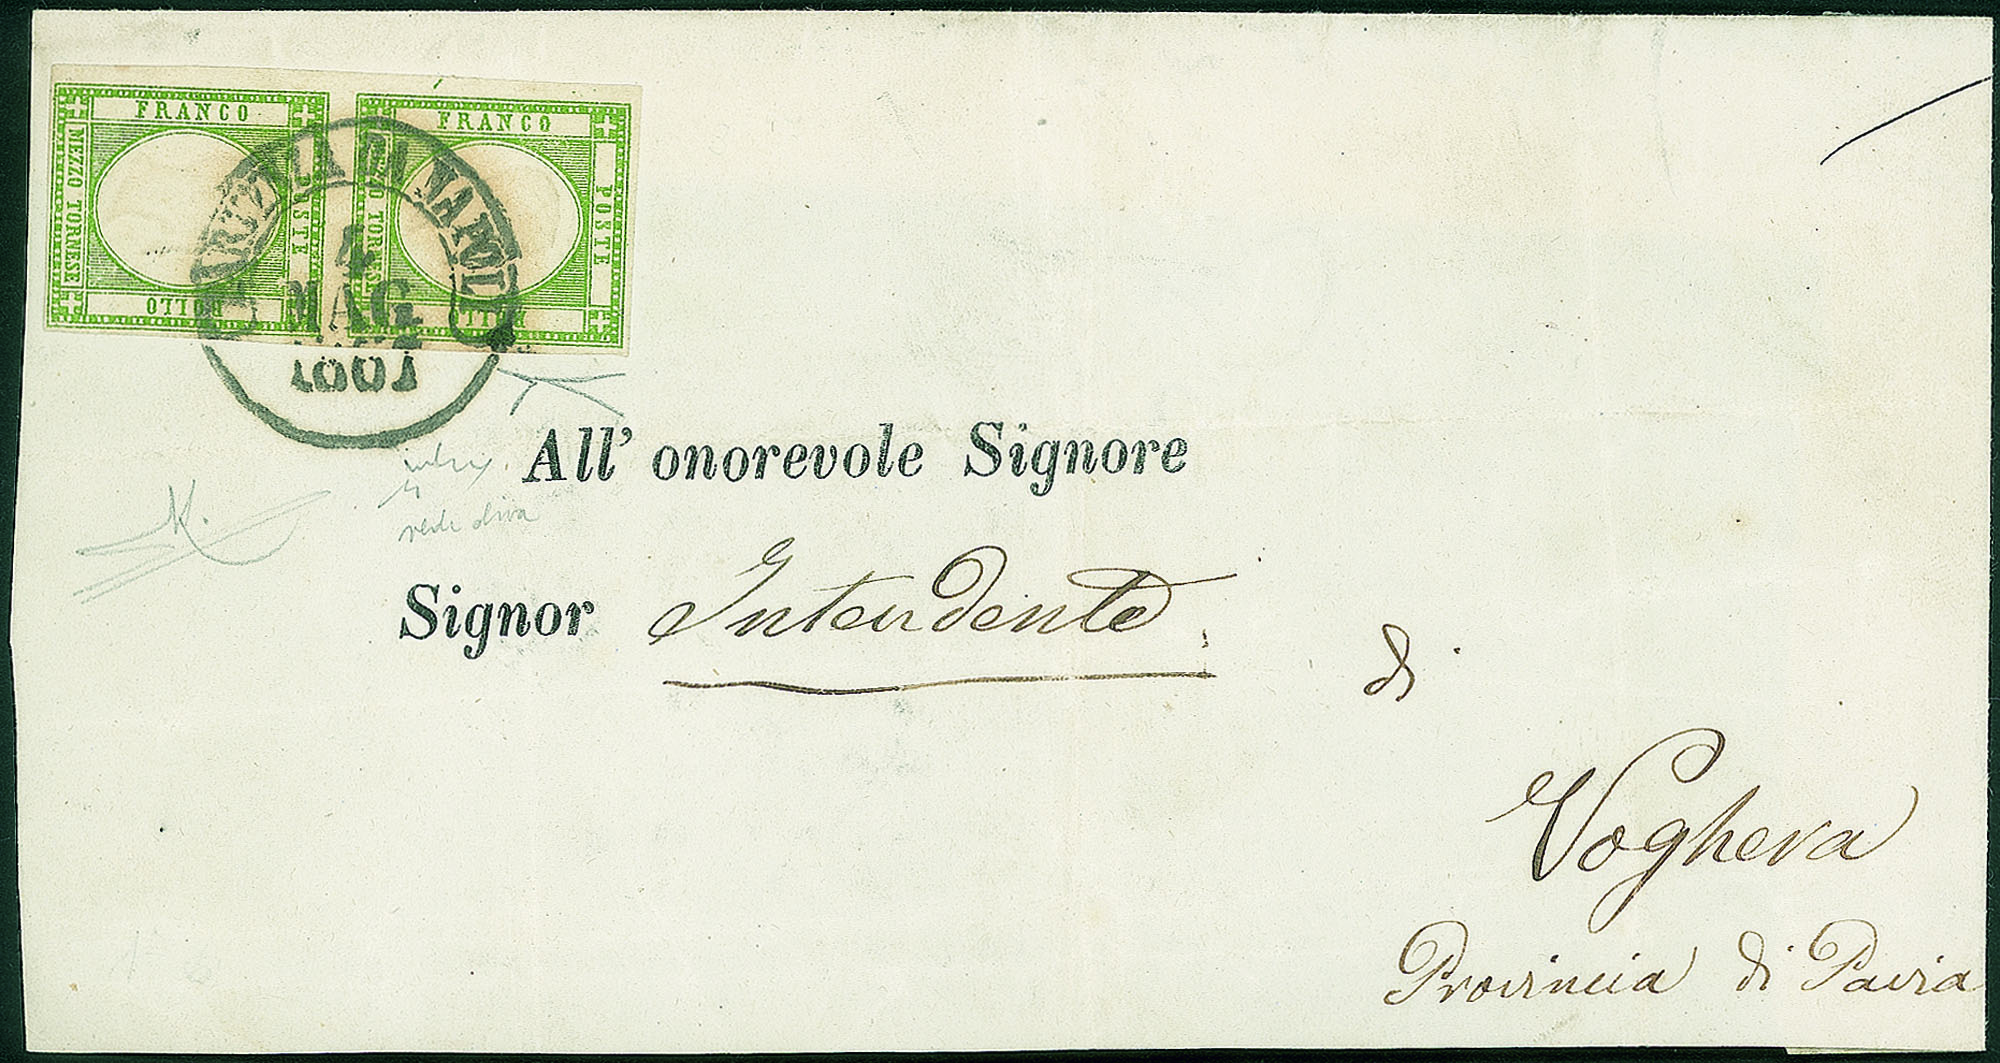 FRANCO
MEZZO TORNESE
POSTE
BOLLO
FRANCO
MEZZO TORNESE
POSTE
BOLLO
DI NAPOLI
4
MAG
All' onorevole Signore
verde oliva
Signor Intendente
di
Voghera
Provincia di Pavia